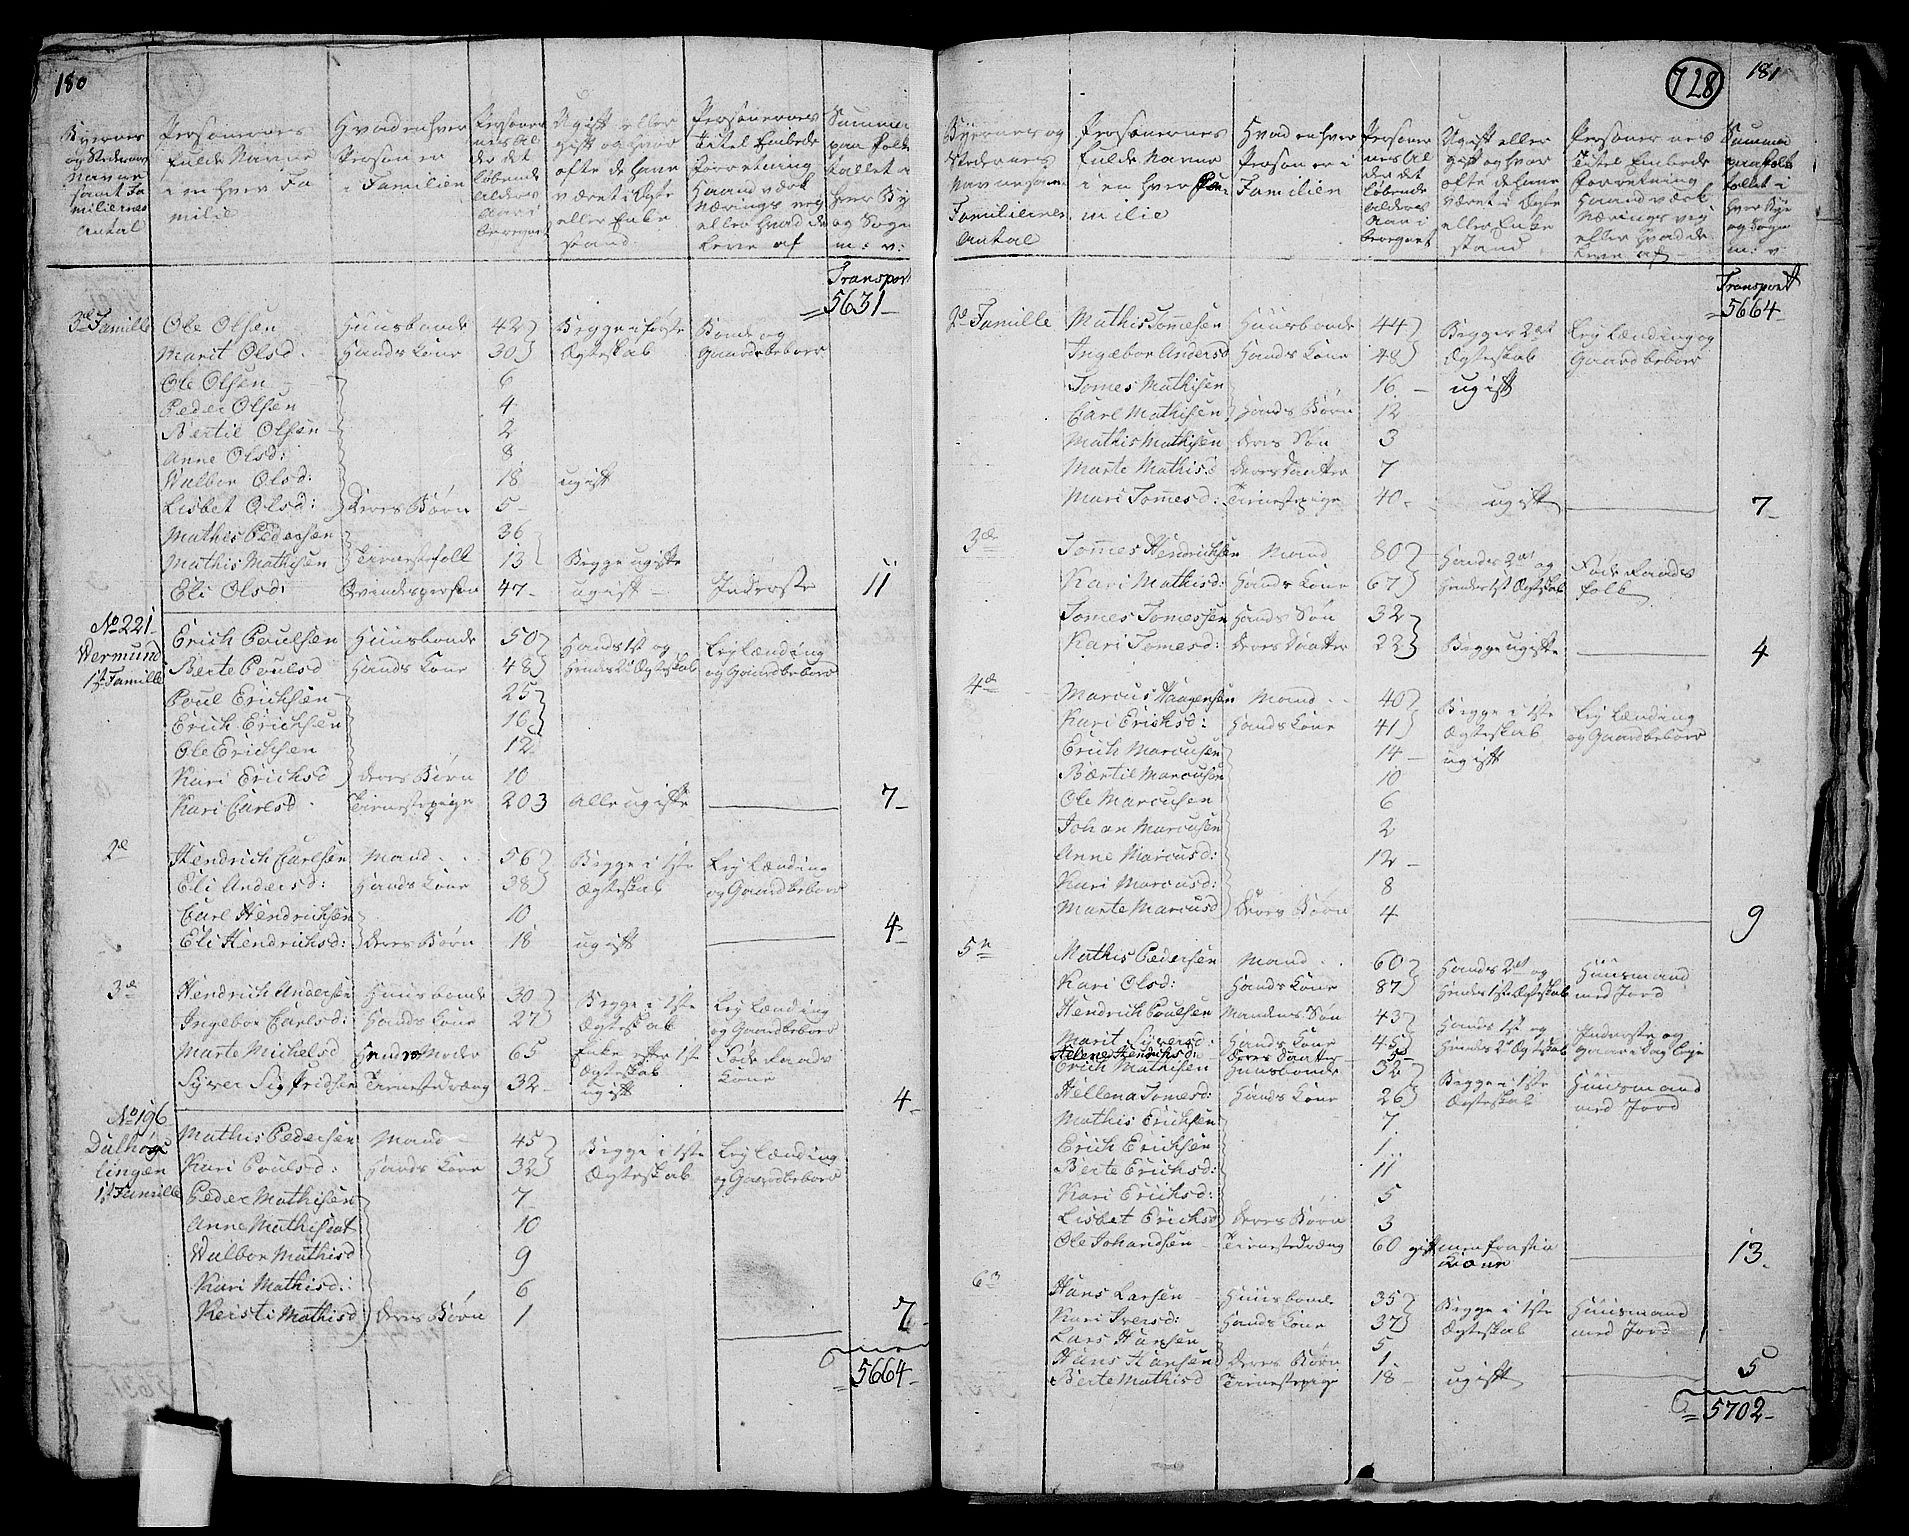 180
Byernes og Stedernes Navne samt Familiernes Antal | Personernes fulde Navne i en hver Familie | Hvad en hver Person er i Familien | Personernes Alder det løbende Alders Aar iberegnet | Ugift eller gift og hvor ofte de have været i Ægte eller Enkestand | Personernes Titel Embede Forretning Haandværk Nærings vej eller hvad de leve af | Summa paa Folketallet i hver By og Sogn m: v:
Transport
5631
3de Familie Ole Olsen Huusbonde 42 Begge i første Bonde og
Marit Olsd. Hands Kone 30 Ægteskab Gaardbeboer
Ole Olsen 6
Peder Olsen 4
Bertil Olsen 2
Anne Olsd: 8
Walbor Olsd: 18 ugift
Lisbet Olsd: Deres Børn 5
Mathis Pedersen 36
Mathis Mathisen Tienestefolk 13 Begge ugifte
Eli Olsd: Qvindesperson 47 ugift Inderste 11
No 221
Wermund
1st Familie
Erich Poulsen Huusbonde 50 Hands 1st og Lejlænding
Berte Poulsd Hands Kone 48 Hendes 2d Ægteskab og Gaardbeboer
Poul Erichsen 25
Erich Erichsen 16
Ole Erichsen 12
Kari Erichsd Deres Børn 10
Kari Carlsd. Tienestepige 203 Alle ugifte 7
2de Hendrich Carlsen Mand 56 Begge i 1ste Lejlænding
Eli Andersd: Hands Kone 38 Ægteskab og Gaardbeboer
Carl Hendrichsen 10
Eli Hendrichsd: Deres Børn 18 ugift 4
3de Hendrich Andersen Huusbonde 30 Begge i 1ste Lejlænding
Ingebor Carlsd: Hands Kone 27 Ægteskab og Gaardbeboer
Marte Michelsd Hendes Moder 65 Enke efter 1st Ægteskab Føderaads Kone
Syver Sigfridsen Tienestedræng 32 ugift 4
No 196
1st Familie
Mathis Pedersen Mand 45 Begge i 1ste Lejlænding
Kari Poulsd: Hands Kone 32 Ægteskab og Gaardbeboer
Peder Mathisen 7
Anne Mathisdat 10
Walbor Mathisd 9
Kari Mathisd: 6
Kersti Mathisd Deres Børn 1 7
5664
728
181
Byernes og Stedernes Navne samt Familiernes Antal | Personernes fulde Navne i en hver Familie | Hvad en hver Person er i Familien | Personernes Alder det løbende Alders Aar iberegnet | Ugift eller gift og hvor ofte de have været i Ægte eller Enkestand | Personernes Titel Embede Forretning Haandværk Nærings vej eller hvad de leve af | Summa paa Folketallet i hver Bye og Sogn m: v
Transport
5664
2de Familie Mathis Tomesen Huusbonde 44 Begge i 2det Lejlænding og
Ingebor Andersd Hands Kone 48 Ægteskab Gaardbeboer
Tomes Mathisen 16 ugift
Carl Mathisen Hands Børn 12
Mathis Mathisen deres Søn 3
Marte Mathisd deres Daatter 7
Mari Tomesd: Tienestepige 40 ugift 7
3de Tommes Hendrichsen Mand 80 Hands 2det og Føderaads
Kari Mathisd: Hands Kone 67 Hendes 1st Ægteskab folk
Tomes Tomessen Hands Søn 32
Kari Tomesd: deres Daatter 22 Begge ugifte 4
4de Marcus Haagensen Mand 40 Begge i 1ste Lejlænding
Kari Erichsd: Hands Kone 41 Ægteskab og Gaardbeboer
Erich Marcusen 14 ugift
Bærtil Marcusen 10
Ole Marcusen 6
Johan Marcusen 2
Anne Marcusd: 12
Kari Marcusd: 8
Marte Marcusd Deres Børn 4 9
5te Mathis Pedersen Mand 60 Hands 2det og Huusmand
Kari Olsd: Hands Kone 87 Hendes 1ste Ægteskab med Jord
Hendrich Poulsen Mandens Søn 43 Hands 1st og Inderste og
Marit Syversd: Hands Kone 45 Hendes 2d Ægteskab
Helene Hendrichsd: Deres Daatter 5
Erich Mathisen Huusbonde 32 Begge i 1ste Huusmand
Hellena Tomesd: Hands Kone 26 Ægteskab med Jord
Mathis Erichsen 7
Erich Erichsen 1
Berte Erichsd: 11
Kari Erichsd: 5
Lisbet Erichsd Deres Børn 3
Ole Johandsen Tienestedræng 60 gift men fra sin Kone 13
6te Hans Larsen Huusbonde 35 Begge i 1ste Huusmand
Kari Iversd: Hands Kone 37 Ægteskab med Jord
Lars Hansen 5
Hans Hansen Deres Børn 1
Berte Mathisd Tienestepige 18 ugift 5
5702